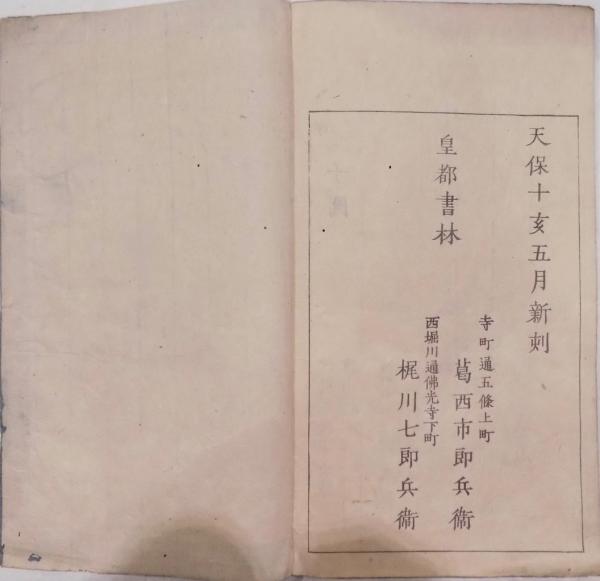 天保十亥五月新刻
皇都書林
寺町通五條上町
葛西市郎兵衛
西堀川通佛光寺下町
梶川七郎兵衛